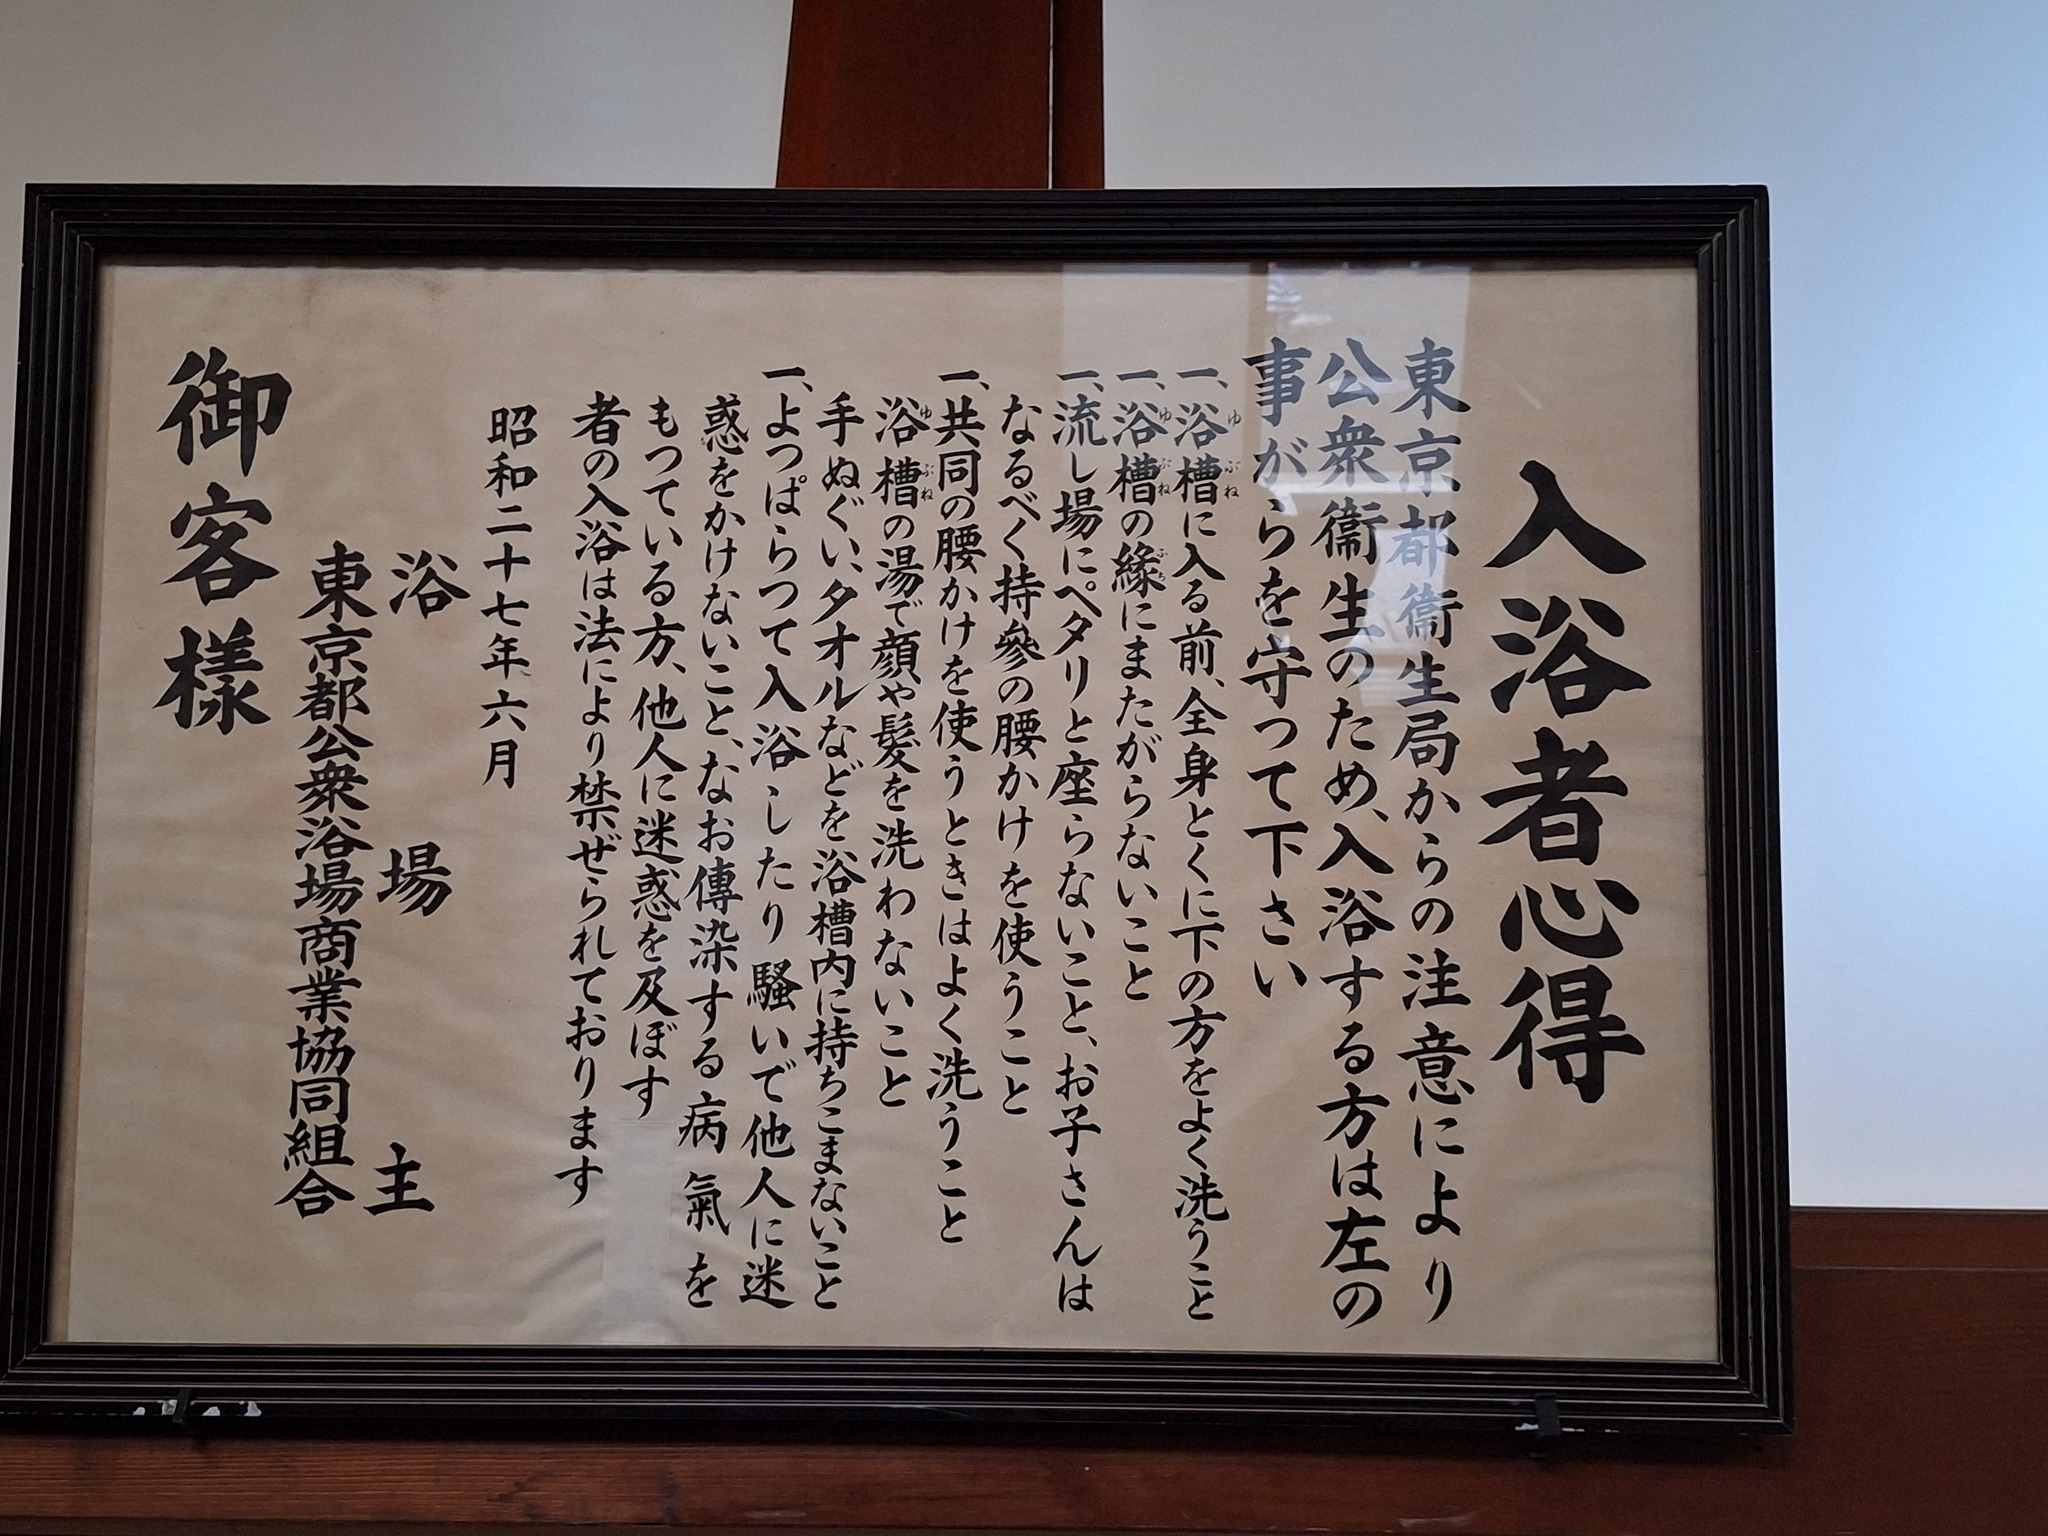 入浴者心得
東京都衞生局からの注意により
公衆衞生のため、入浴する方は左の
事がらを守つて下さい
一、浴槽に入る前、全身とくに下の方をよく洗うこと
ゆぶね
一、浴槽の縁にまたがらないこと
ゆぶね ふち
一、流し場にペタリと座らないこと、お子さんは
なるべく持參の腰かけを使うこと
一、共同の腰かけを使うときはよく洗うこと
浴槽の湯で顔や髪を洗わないこと
ゆぶね
手ぬぐい、タオルなどを浴槽内に持ちこまないこと
一、よつぱらつて入浴したり騒いで他人に迷
惑をかけないこと、なお傳染する病氣を
もつている方、他人に迷惑を及ぼす
者の入浴は法により禁ぜられております
昭和二十七年六月
浴場主
東京都公衆浴場商業協同組合
御客様